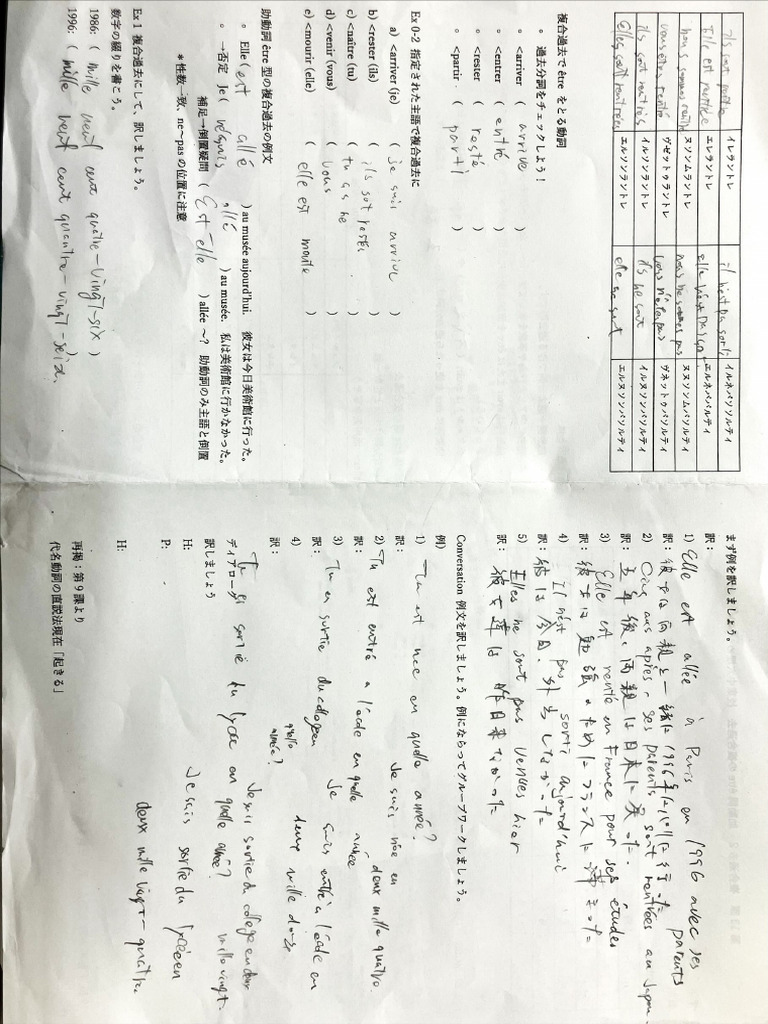 ils sont rentré イレラントレ il n'est pas sorti イルネパソルティ
Elle est rentrée エレラントレ elle n'est pas エルネパソルティ
nous sommes rentré ヌソンムラントレ nous ne sommes pas ヌヌソンムパソルティ
vous êtes rentré ヴゼットゥラントレ vous n'êtes pas ヴネットゥパソルティ
ils sont rentrés イルソンラントレ ils ne sont イルヌソンパソルティ
Elles sont rentrées エルソンラントレ elle ne sont エルヌソンパソルティ
複合過去で être をとる動詞
。過去分詞をチェックしよう！
。<arriver ( arrive )
。<entrer ( entré )
。<rester ( resté )
。<partir. ( parti )
Ex 0-2 指定された主語で複合過去に
a) <arriver (je) ( je suis arrive )
b) <rester (ils) ( ils sot restés . )
c) <naître (tu) ( tu as ne )
d) <venir (vous) ( vous )
e) <mourir (elle) ( elle est morte )
助動詞 être 型の複合過去の例文
。Elle ( est allé ) au musée aujourd'hui. 彼女は今日美術館に行った。
。→否定 Je ( ne suis allé ) au musée. 私は美術館に行かなかった。
補足→倒置疑問 ( Est elle ) allée ～? 助動詞のみ主語と倒置
＊性数一致、ne～pas の位置に注意
Ex 1 複合過去にして、訳しましょう。
数字の綴りを書こう。
1986: ( mille neuf cent quatre-vingt-six )
1996: ( mille neuf cent quatre-vingt-seize )
まず例を訳しましょう。
訳：
1) Elle est allée à Paris en 1996 avec ses parents
訳：彼女は両親と一緒に1996年にパリに行った
2) Cinq ans après, ses parents sont rentrées au Japon.
訳：5年後、両親は日本に戻った.
3) Elle est resté en France pour ses études
訳：彼女は勉強のためにフランスに滞まった
4) Il n'est pas sorti aujourd'hui
訳：彼は今日、外出しなかった
5) Elles ne sont pas venues hier
訳：彼女達は昨日来なかった
Conversation 例文を訳しましょう。例にならってグループワークしましょう。
例）
1) Tu est née en quelle année?
訳： Je suis née en deux mille quatre.
2) Tu est entré a l'école en quelle année
訳： Je suis entré à l'école en
3) Tu es sortie du collegeen quelle année?
訳： deux mille douze
4) Je suis sortie du collegeen deux mille vingt.
訳：
Tu es sortie du lycee en quelle année?
ディアローグ
訳しましょう Je suis sortie du lycéeen
H: deux mille vingt-quatre.
P:
H:
再掲：第9課より
代名動詞の直説法現在「起きる」